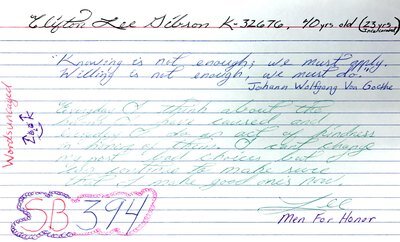 Clifton Lee Gibson K-32676, 40 yrs old (23 yrs Incarcerated)
"Knowing is not enough; we must apply.
Willing is not enough, we must do."
Johann Wolfgang Von Goethe
Everyday I think about the
I have caused and
Everyday I do an act of kindness
in honor of them. I can't change
my past bad choices but I
can continue to make sure
I make good one's now.
Lee
Men For Honor
Wordsuncaged
Book
SB 394